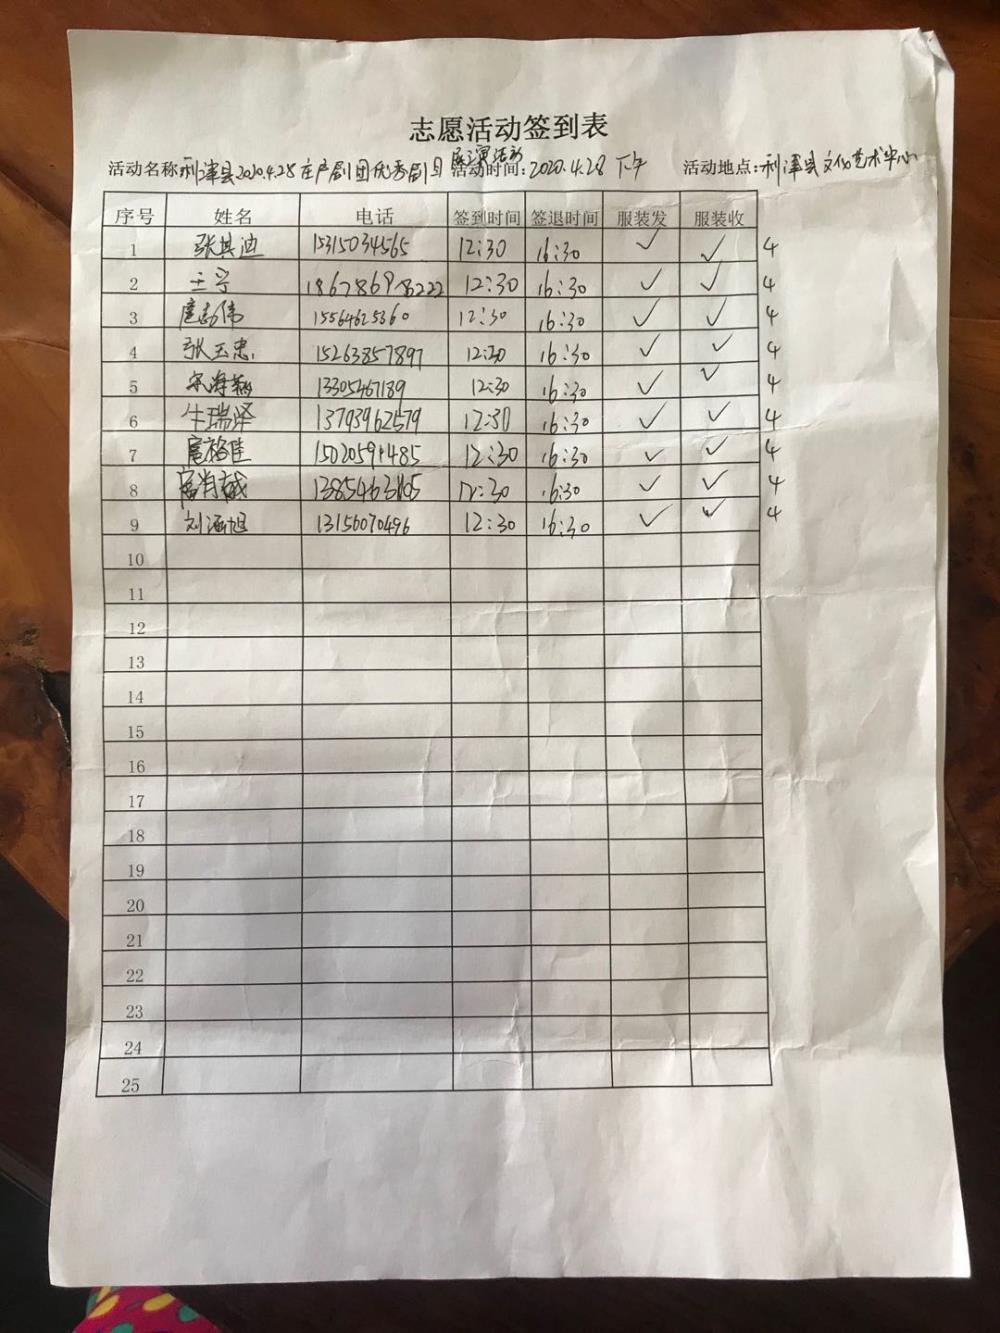 志愿活动签到表
活动名称:利津县2020.4.28庄户剧团优秀剧目展演活动 活动时间:2020.4.28 下午 活动地点:利津县文化艺术中心
序号 姓名 电话 签到时间 签退时间 服装发 服装收
1 张其迪 15315034565 12:30 16:30 ✓ ✓ 4
2 王宁 18678698222 12:30 16:30 ✓ ✓ 4
3 扈志伟 15564625360 12:30 16:30 ✓ ✓ 4
4 张玉忠 15263857897 12:30 16:30 ✓ ✓ 4
5 13305467189 12:30 16:30 ✓ ✓ 4
6 牛瑞泽 13793962579 12:30 16:30 ✓ ✓ 4
7 15020591485 12:30 16:30 ✓ ✓ 4
8 12:30 16:30 ✓ ✓ 4
9 刘涵旭 13156070496 12:30 16:30 ✓ ✓ 4
10
11
12
13
14
15
16
17
18
19
20
21
22
23
24
25